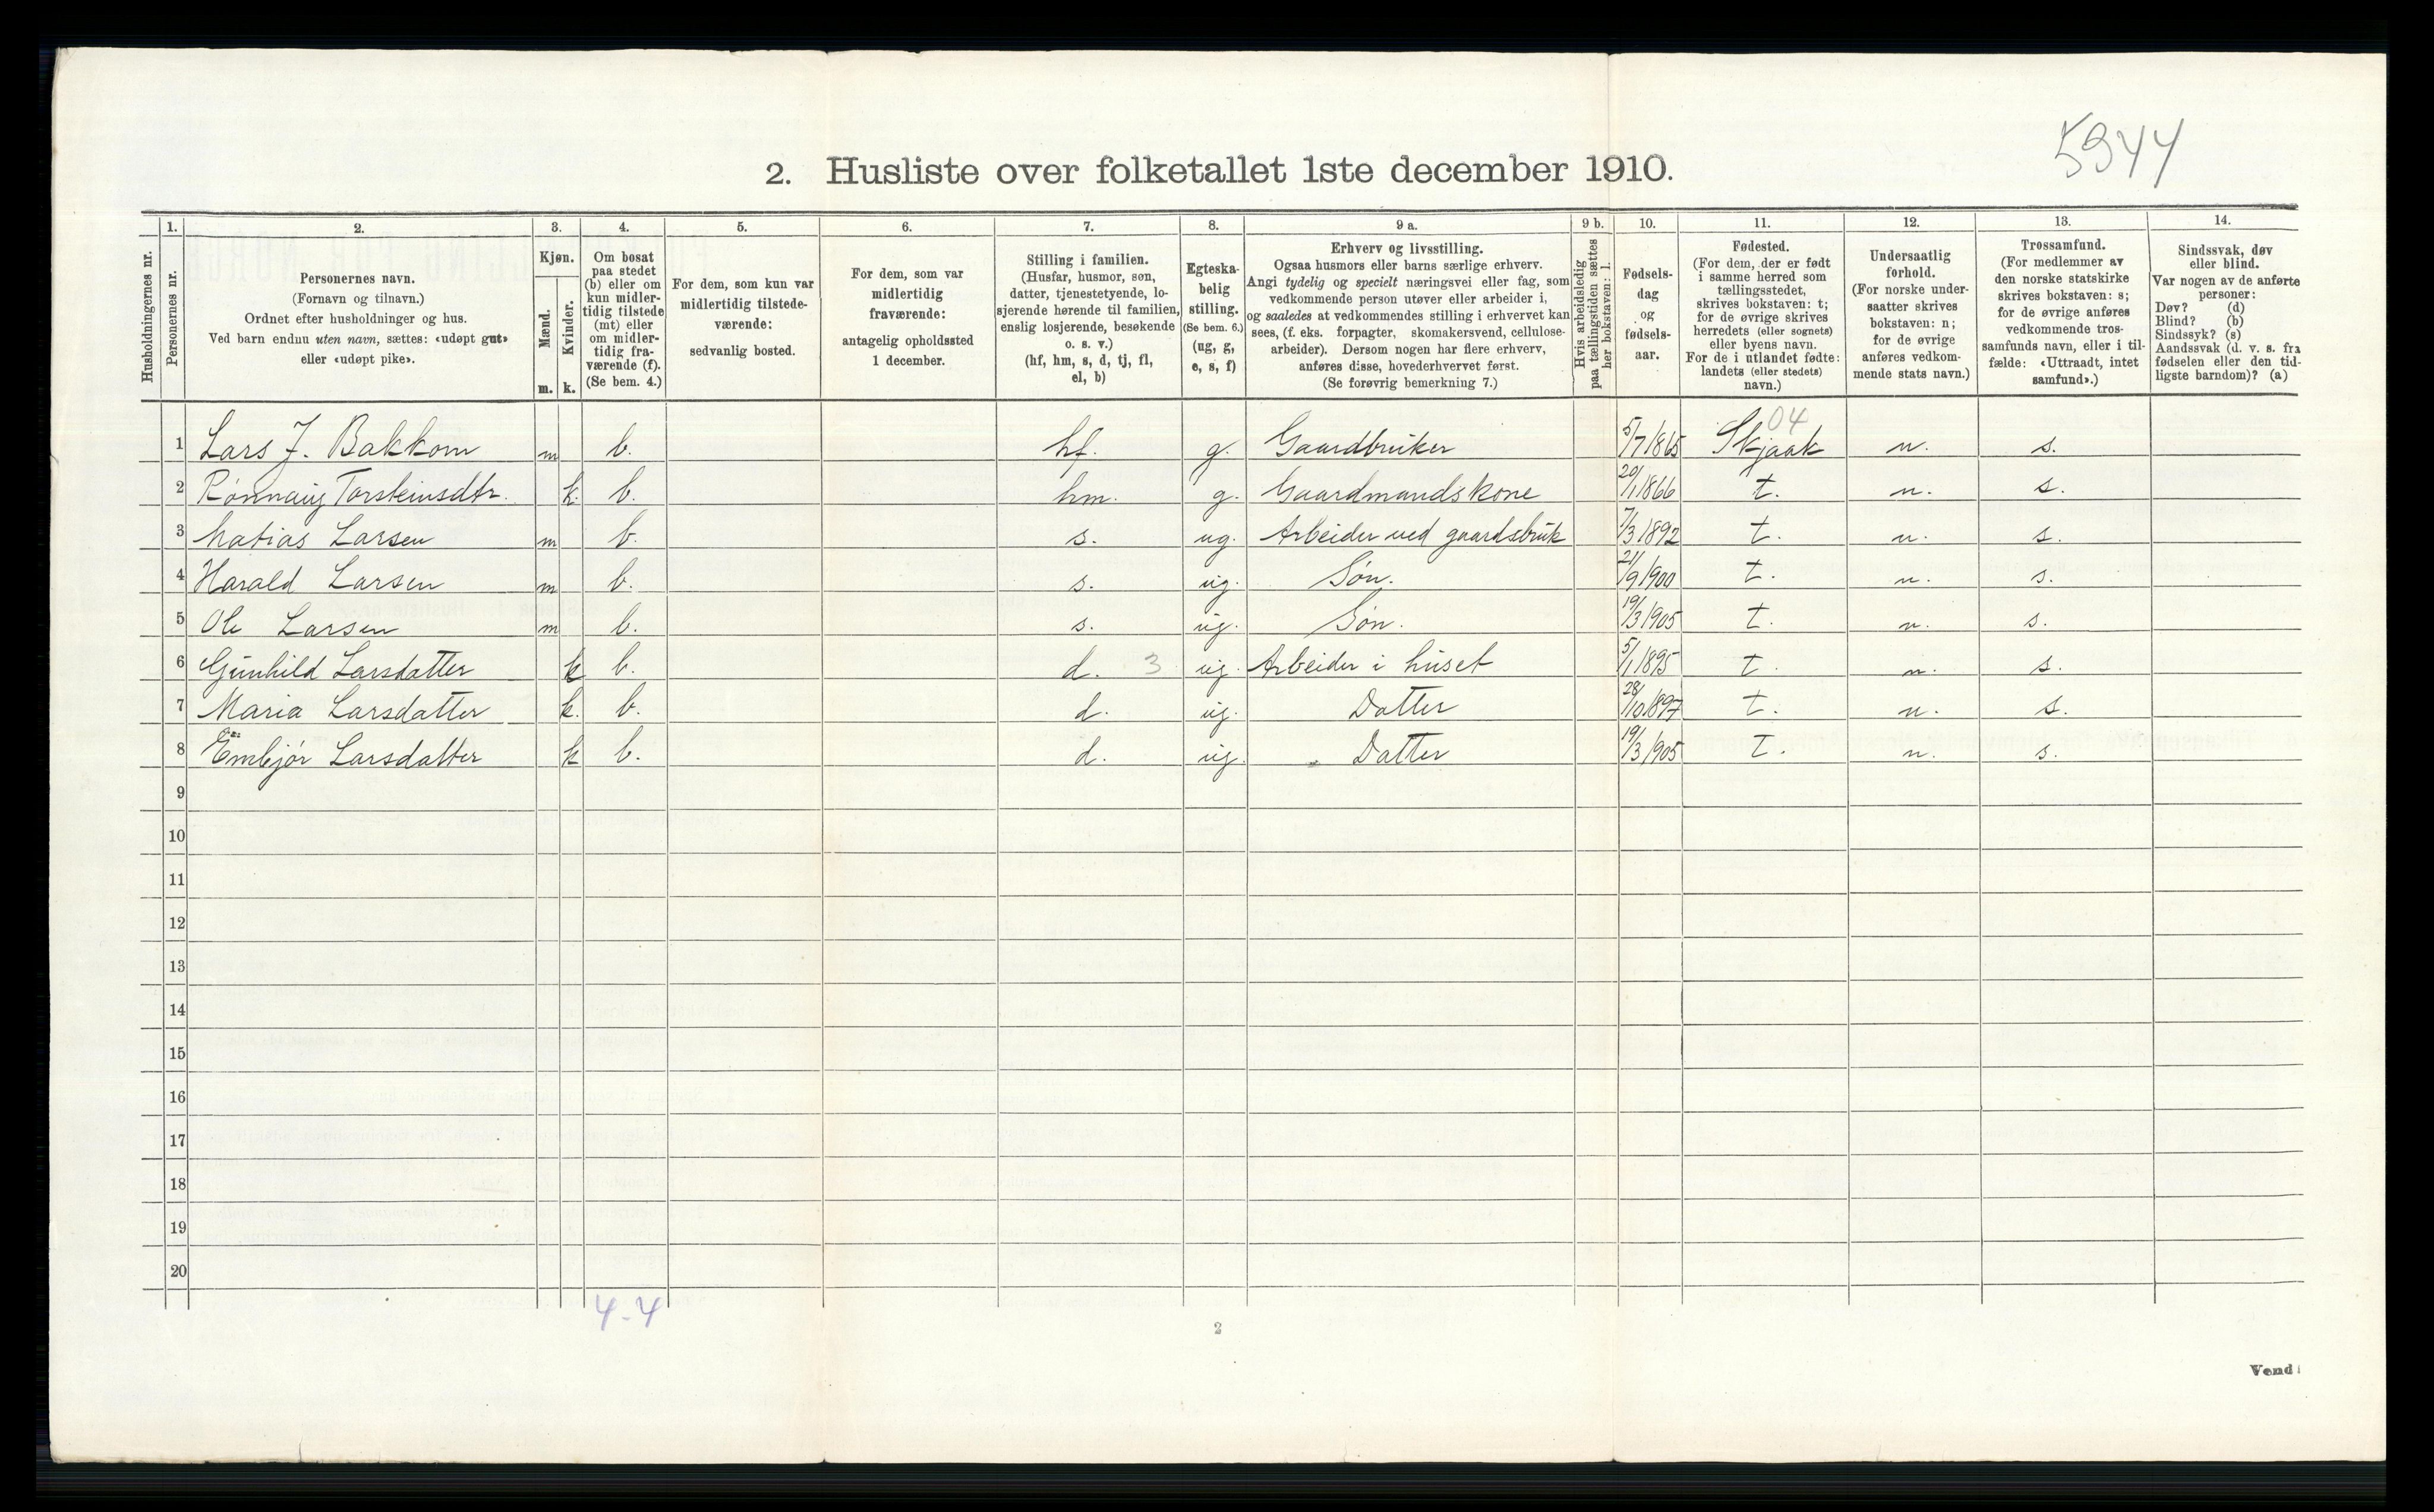 5944
2. Husliste over folketallet 1ste december 1910.
Husholdningernes nr.
1. Personernes nr.
2. Personernes navn. (Fornavn og tilnavn.) Ordnet efter husholdninger og hus. Ved barn endnu uten navn, sættes: «udøpt gut» eller «udøpt pike».
3. Kjøn. Mænd. m. Kvinder. k.
4. Om bosat paa stedet (b) eller om kun midlertidig tilstede (mt) eller om midlertidig fraværende (f). (Se bem. 4.)
5. For dem, som kun var midlertidig tilstedeværende: sedvanlig bosted.
6. For dem, som var midlertidig fraværende: antagelig opholdssted 1 december.
7. Stilling i familien. (Husfar, husmor, søn, datter, tjenestetyende, losjerende hørende til familien, enslig losjerende, besøkende o. s. v.) (hf, hm, s, d, tj, fl, el, b)
8. Egteskabelig stilling. (Se bem. 6.) (ug, g, e, s, f)
9 a. Erhverv og livsstilling. Ogsaa husmors eller barns særlige erhverv. Angi tydelig og specielt næringsvei eller fag, som vedkommende person utøver eller arbeider i, og saaledes at vedkommendes stilling i erhvervet kan sees, (f. eks. forpagter, skomakersvend, cellulosearbeider). Dersom nogen har flere erhverv, anføres disse, hovederhvervet først. (Se forøvrig bemerkning 7.)
9 b. Hvis arbeidsledig paa tællingstiden sættes her bokstaven: l.
10. Fødselsdag og fødselsaar.
11. Fødested. (For dem, der er født i samme herred som tællingsstedet, skrives bokstaven: t; for de øvrige skrives herredets (eller sognets) eller byens navn. For de i utlandet fødte: landets (eller stedets) navn.)
12. Undersaatlig forhold. (For norske undersaatter skrives bokstaven: n; for de øvrige anføres vedkommende stats navn.)
13. Trossamfund. (For medlemmer av den norske statskirke skrives bokstaven: s; for de øvrige anføres vedkommende trossamfunds navn, eller i tilfælde: «Uttraadt, intet samfund».)
14. Sindssvak, døv eller blind. Var nogen av de anførte personer: Døv? (d) Blind? (b) Sindssyk? (s) Aandssvak (d. v. s. fra fødselen eller den tidligste barndom)? (a)
04
1 Lars J. Bakkom m b. hf. g. Gaardbruker 5/7 1865 Skjaak n. s.
2 Rønnaug Torsteinsdtr. k. b. hm. g. Gaardmandskone 20/1 1866 t. n. s.
3 Matias Larsen m b. s. ug. Arbeider ved gaardsbruk 7/3 1892 t. n. s.
4 Harald Larsen m b. s. ug. Søn. 21/9 1900 t. n. s.
5 Ole Larsen m b. s. ug. Søn. 19/3 1905 t. n. s.
6 Gunhild Larsdatter k b. d. 3 ug. Arbeider i huset 5/1 1895 t. n. s.
7 Maria Larsdatter k. b. d. ug. Datter 28/10 1897 t. n. s.
8 Embjør Larsdatter k b. d. ug. Datter 19/3 1905 t. n. s.
9
10
11
12
13
14
15
16
17
18
19
20
4-4
2
Vend!